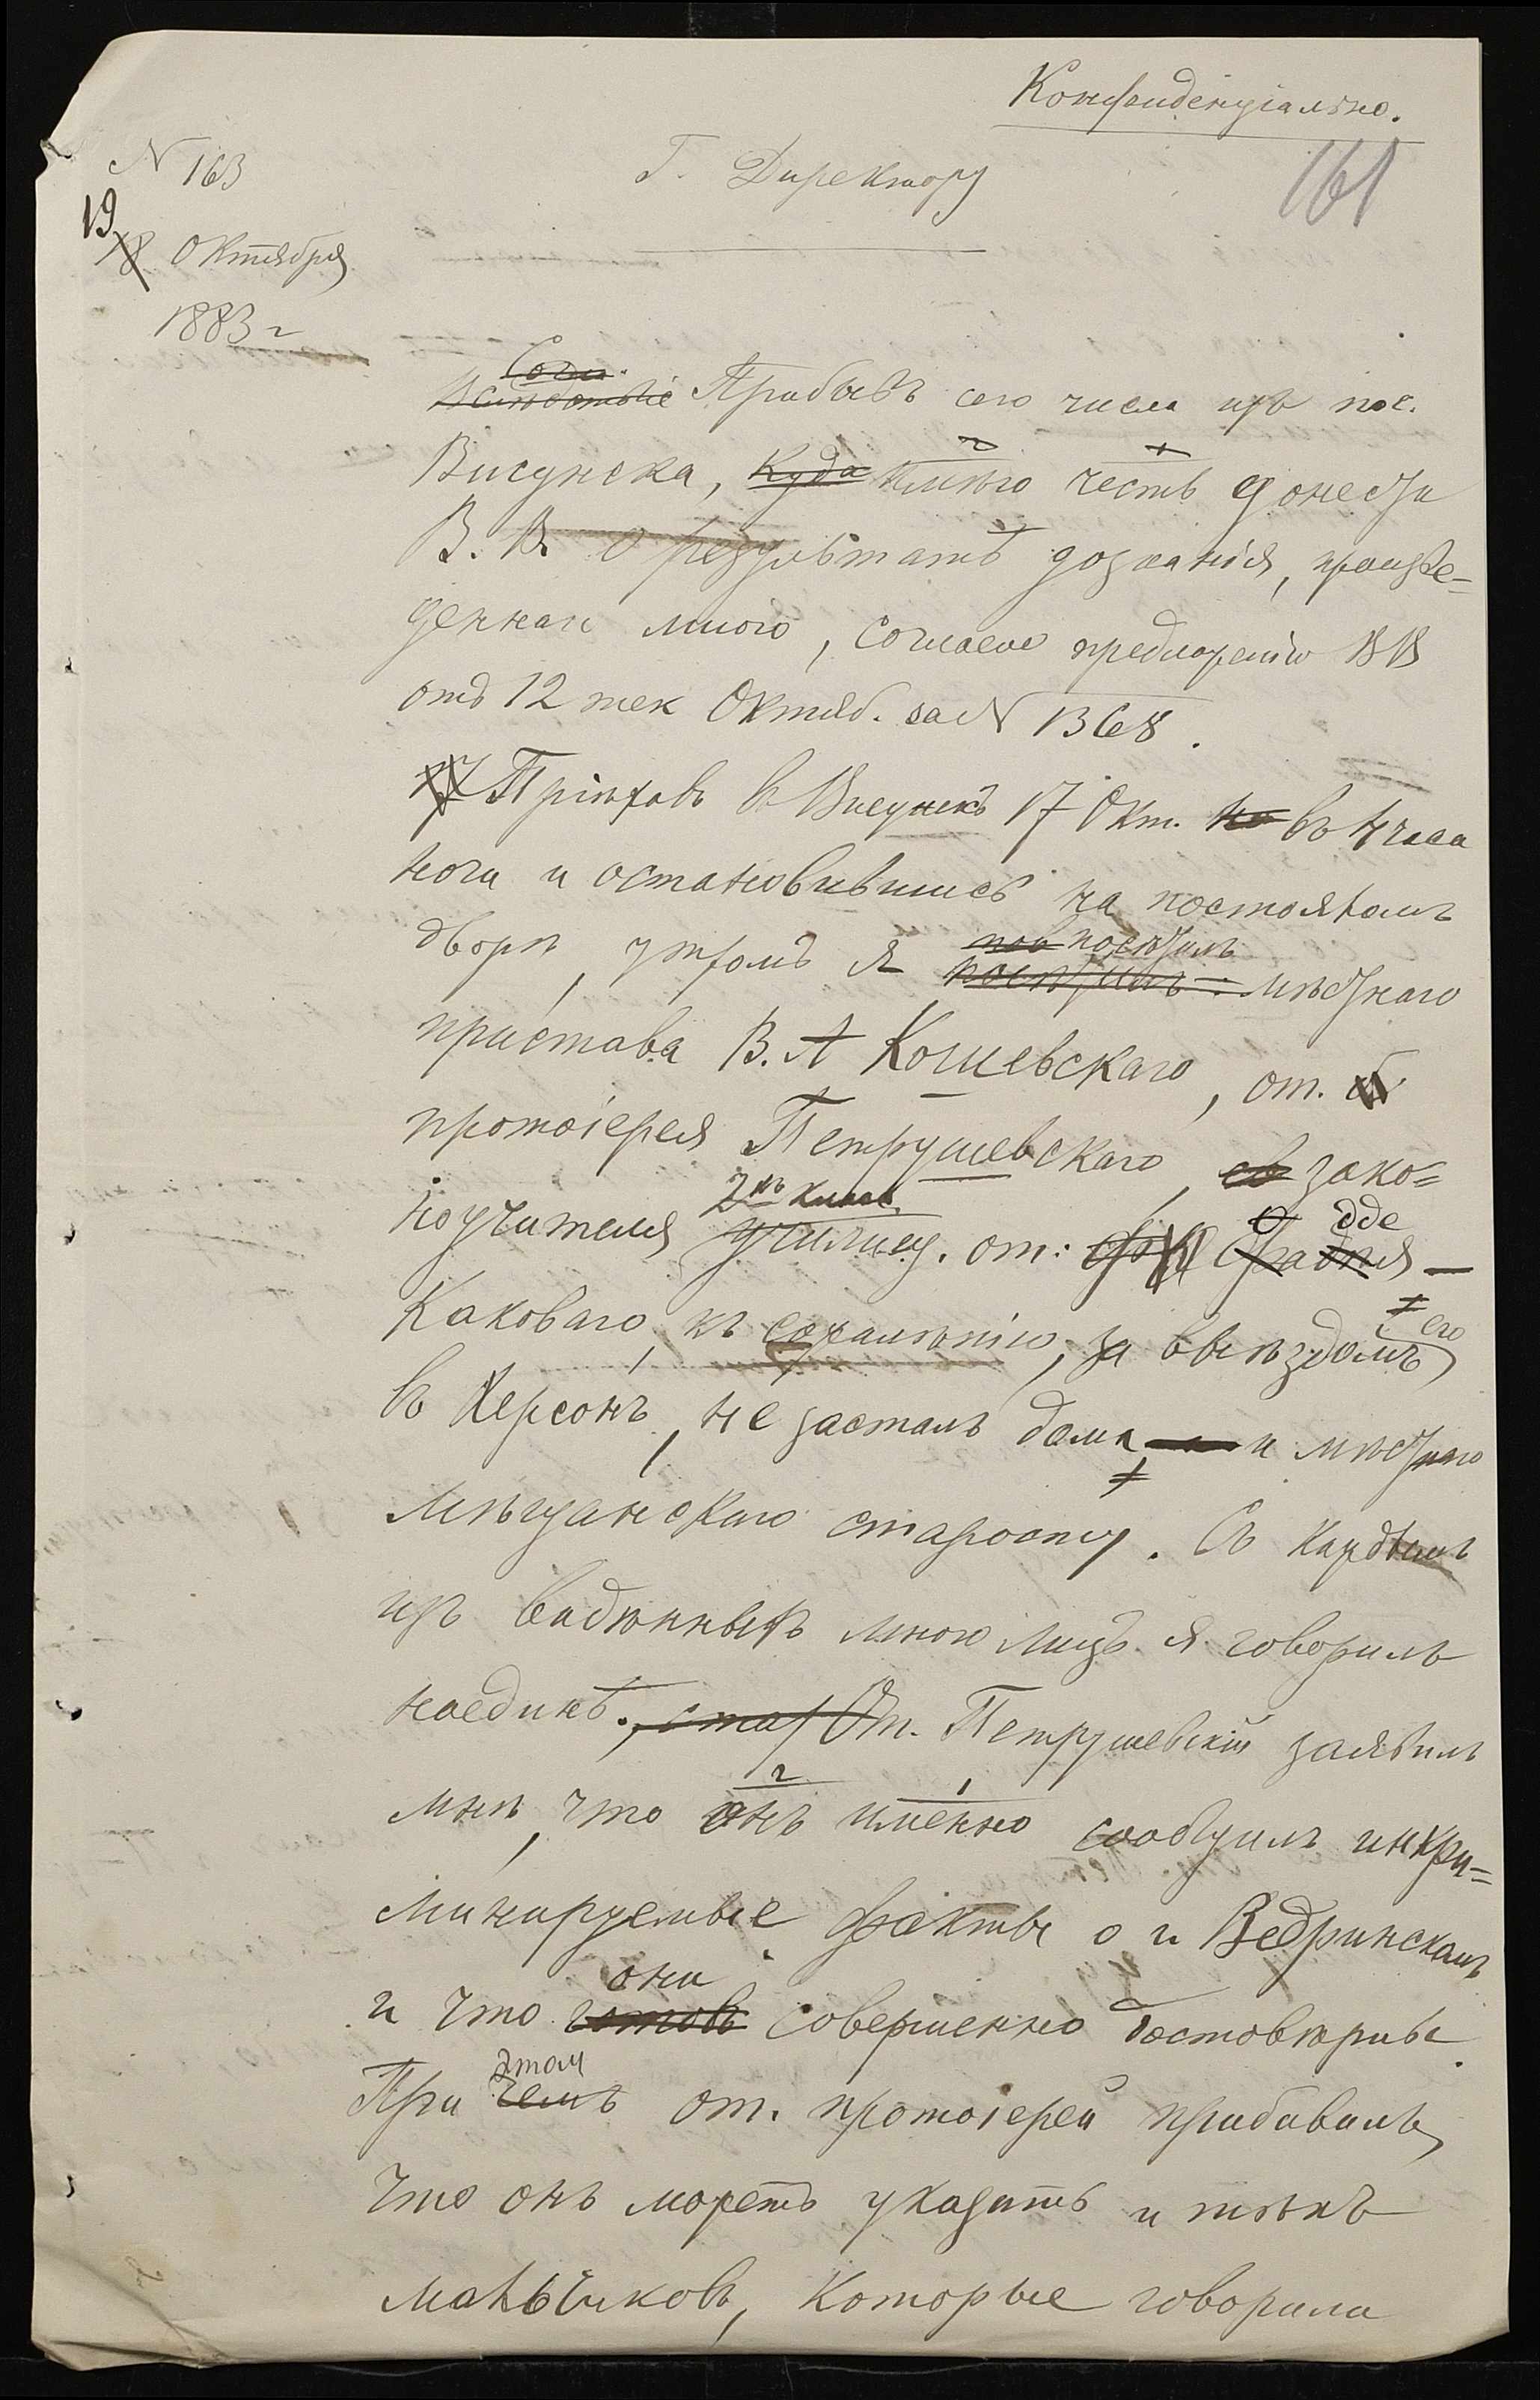 Конфиденціально.
161
N 163
Г. Директору
19
18 Октября
1883 г
Согл.
Вслѣдствіе Прибывъ сего числа изъ пос.
Висунска, куда имѣю честь донести
В. В. о результатѣ дознанія, произве-
деннаго мною, согласно предложенію ВВ
отъ 12 тек Октяб. за N 1368.
17 Пріѣхавъ в Висунскъ 17 Окт. въ 4 часа
ночи и остановившись на постояломъ
пов посѣтилъ
дворѣ, утромъ я посѣтилъ мѣстнаго
пристава В. А Кошевскаго, от.
протоіерея Петрушевскаго, св зако=
2хъ клас.
ноучителя училищ. от: Фаддея
Каковаго, къ сожалѣнію, за выѣздомъ его
въ Херсонъ, не засталъ дома и мѣстнаго
мѣщанскаго старосту. Съ каждымъ
изъ видѣнныхъ мною лицъ я говорилъ
наединѣ. От. Петрушевскій заявилъ
2 1
мнѣ, что онъ именно сообщилъ инкри=
минируемые факты о г Ведринскомъ
они
и что готовъ совершенно достовѣрны.
этом
При чемъ от. протоіерей прибавилъ,
что онъ можетъ указать и тѣхъ
мальчиковъ, которые говорили